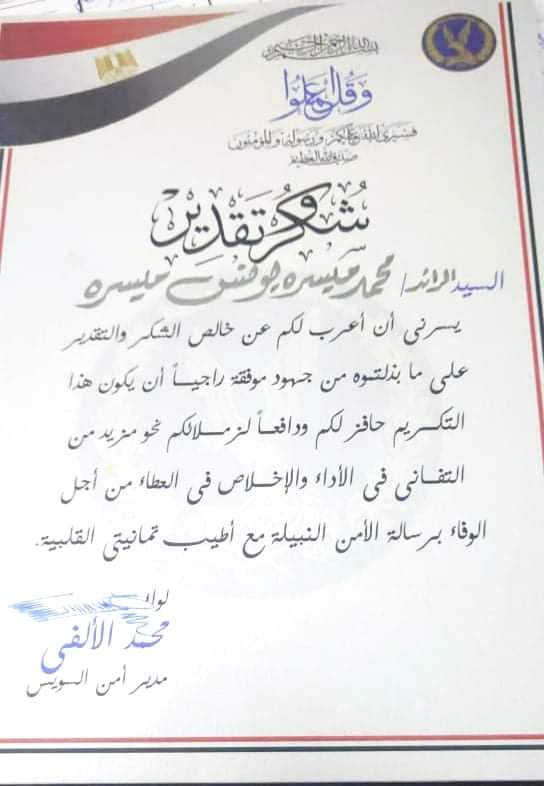 بسم الله الرحمن الرحيم
وقل اعملوا
فسيرى الله عملكم ورسوله والمؤمنون
صدق الله العظيم
شكر وتقدير
السيد الرائد/ محمد ميسره يونس ميسره
يسرنى أن أعرب لكم عن خالص الشكر والتقدير
على ما بذلتموه من جهود موفقة راجياً أن يكون هذا
التكريم حافز لكم ودافعاً لزملائكم نحو مزيد من
التفانى فى الأداء والإخلاص فى العطاء من أجل
الوفاء برسالة الأمن النبيلة مع أطيب تمانيتى القلبية.
لواء
محمد الألفى
مدير أمن السويس